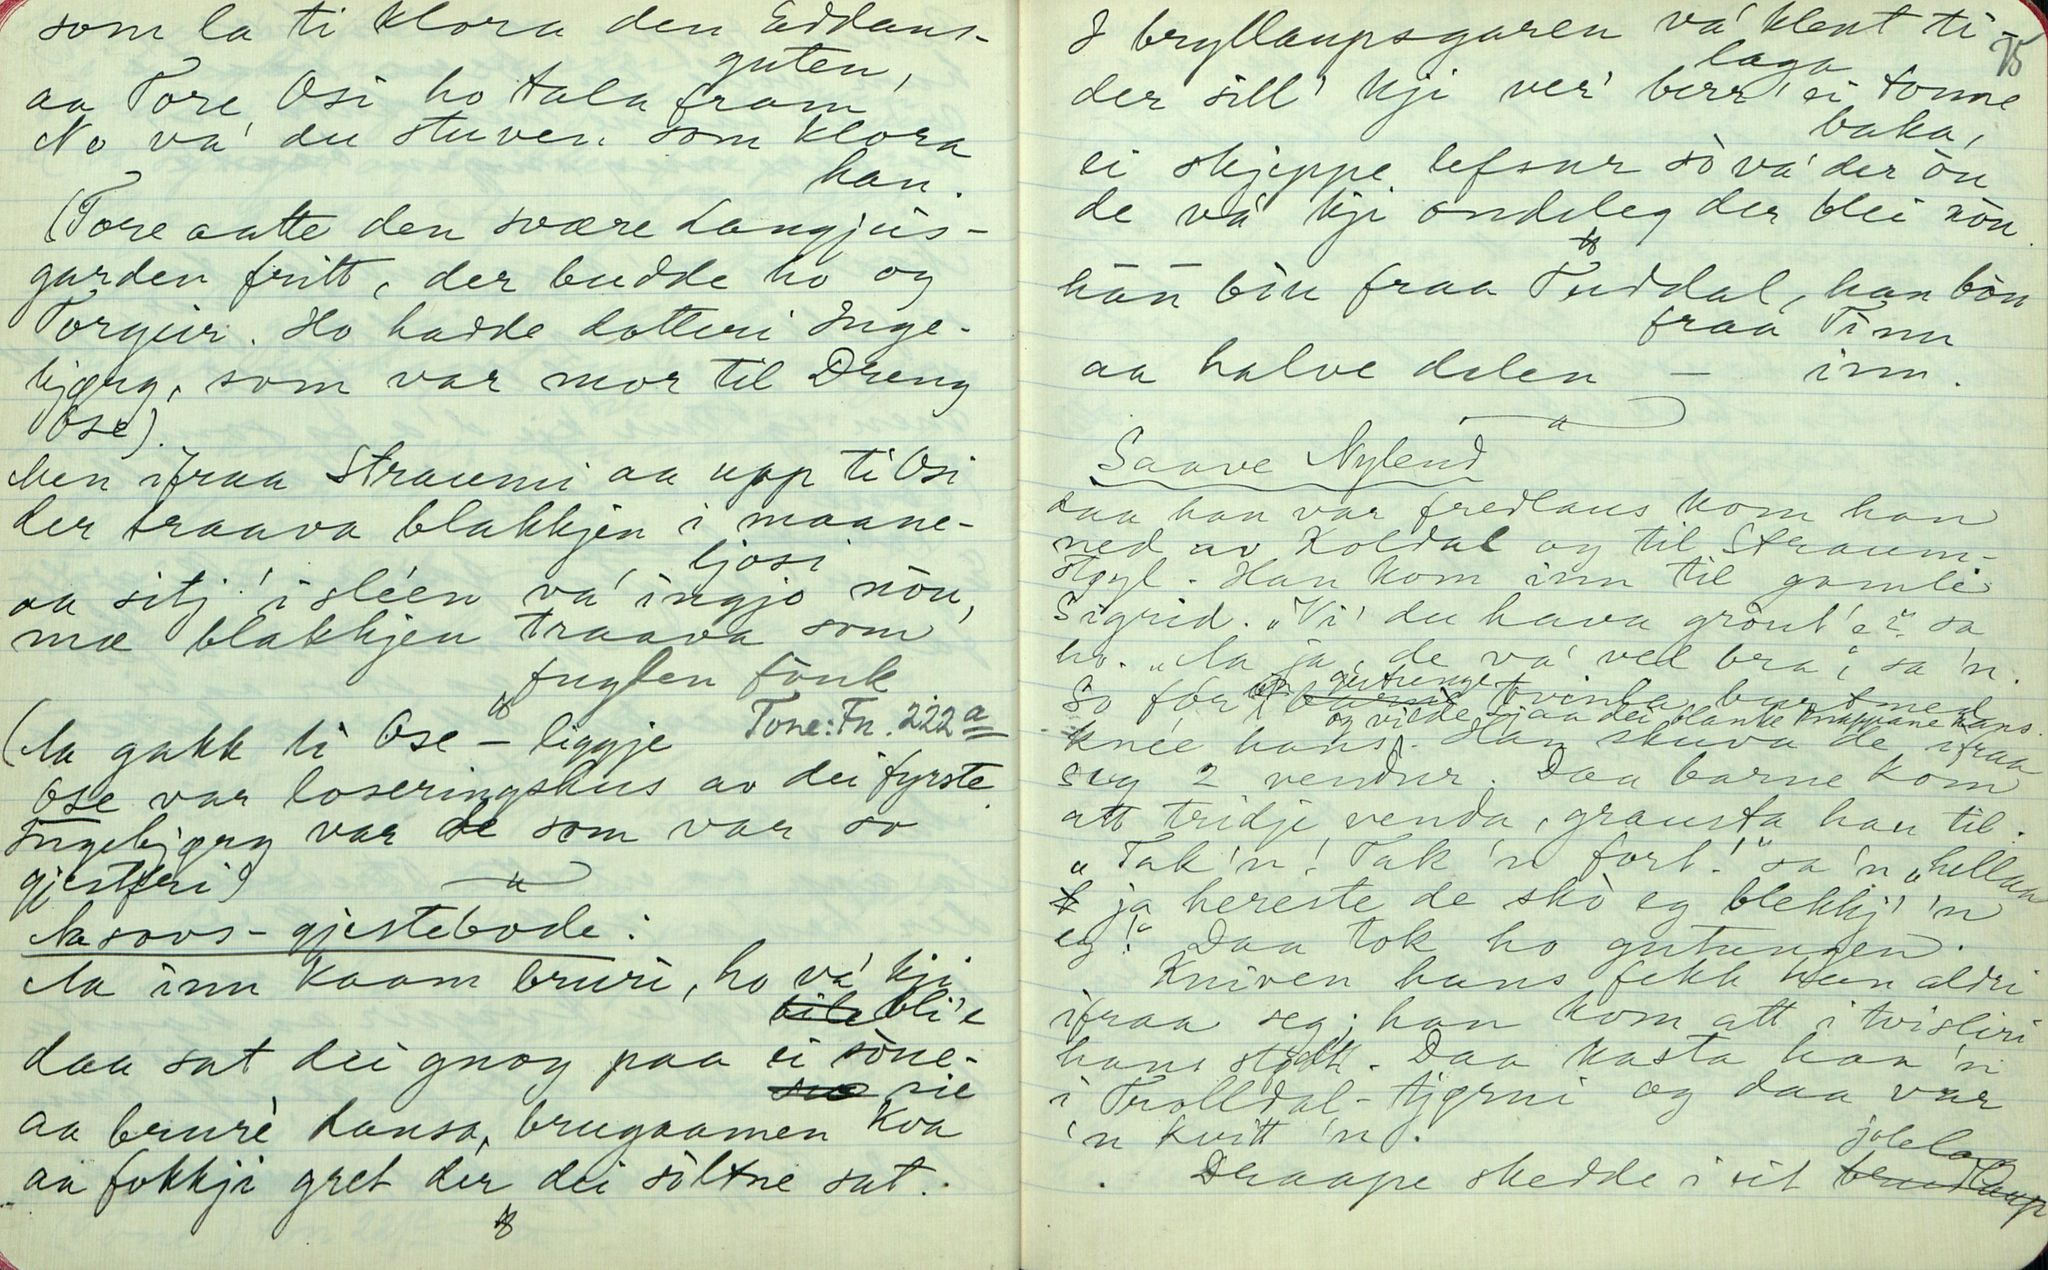 som la ti klora den Eddans-
guten,
aa Tore Osi ho tala fram
No va' du stuven som klora
han.
(Tore aatte den svære Langjús-
garden fritt, der budde ho og
Torgeir. Ho hadde dotteri Inge-
bjørg, som var mor til Dreng
Ose).
Men ifraa Straumi aa upp ti Osi
der traava blakkjen i maane-
ljosi
aa sitj' i sléen va' ingjo nôu,
mæ blakkjen traava som
fuglen fôuk
(Aa gakk ti Ose – liggje Tone: Fn. 222a
Ose var loseringshus av dei fyrste.
Ingebjørg var de som var so
gjestfri)
Aasovs-gjestebode:
Aa inn kaam bruri, ho va' kji
bli'e
daa sat dei gnog paa ei sòne-
sie
aa brurè dansa, brugaamen kva
aa fokkji gret dér dei sòltne sat.
75
I bryllaupsgaren va' klent ti-
laga
der sill' kji ver' berr' ei tonne
baka,
ei skjeppe lefsur sò va' der ôu
de va' kji ondeleg der blei nôu.
bôu fraa Tuddal, han bôu
fraa Tinn
aa halve dalen – inn.
Saave Nylend
daa han var fredlaus kom han
ned av Roldal og til Straum-
støyl. Han kom inn til gamle
Sigrid. "Vi' du hava grôut'e?" sa
ho. "Aa ja, de va' vel bra", sa 'n.
So for gutunge tvinla burtmed
og vilde sjaa dei blanke knappane hans.
knée hans. Han skuva de ifraa
seg 2 vendur. Daa barne kom
att tridje venda, grausta han til.
"Tak 'n! Tak 'n fort!" sa 'n "hellaa
ja hereste de skò eg blekkj' 'n
eg!" Daa tok ho gutungen.
Kniven hans fekk han aldri
ifraa seg; han kom att i tvisliri
hans støtt. Daa kasta han 'n
i Trolldal-tjørni og daa var
'n kvitt 'n.
Draape skedde i eit jolelag